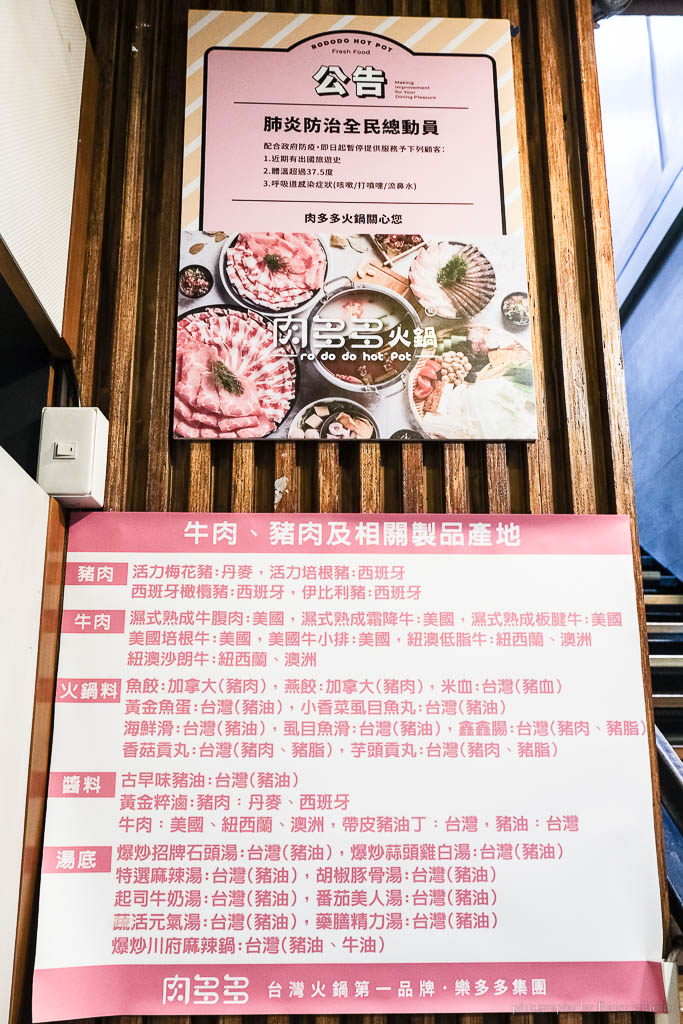 RODODO HOT POT
Fresh Food
公告
Making
Improvement
for Your
Dining Pleasure
肺炎防治全民總動員
配合政府防疫,即日起暫停提供服務予下列顧客:
1.近期有出國旅遊史
2.體溫超過37.5度
3.呼吸道感染症狀(咳嗽/打噴嚏/流鼻水)
肉多多火鍋關心您
肉多多火鍋®
ro do do hot pot
牛肉、豬肉及相關製品產地
豬肉 活力梅花豬:丹麥,活力培根豬:西班牙
西班牙橄欖豬:西班牙,伊比利豬:西班牙
牛肉 濕式熟成牛腹肉:美國,濕式熟成霜降牛:美國,濕式熟成板腱牛:美國
美國培根牛:美國,美國牛小排:美國,紐澳低脂牛:紐西蘭、澳洲
紐澳沙朗牛:紐西蘭、澳洲
火鍋料 魚餃:加拿大(豬肉),燕餃:加拿大(豬肉),米血:台灣(豬血)
黃金魚蛋:台灣(豬油),小香菜虱目魚丸:台灣(豬油)
海鮮滑:台灣(豬油),虱目魚滑:台灣(豬油),鑫鑫腸:台灣(豬肉、豬脂)
香菇貢丸:台灣(豬肉、豬脂),芋頭貢丸:台灣(豬肉、豬脂)
醬料 古早味豬油:台灣(豬油)
黃金粹滷:豬肉:丹麥、西班牙
牛肉:美國、紐西蘭、澳洲,帶皮豬油丁:台灣,豬油:台灣
湯底 爆炒招牌石頭湯:台灣(豬油),爆炒蒜頭雞白湯:台灣(豬油)
特選麻辣湯:台灣(豬油),胡椒豚骨湯:台灣(豬油)
起司牛奶湯:台灣(豬油),番茄美人湯:台灣(豬油)
蔬活元氣湯:台灣(豬油),藥膳精力湯:台灣(豬油)
爆炒川府麻辣鍋:台灣(豬油、牛油)
肉多多 台灣火鍋第一品牌·樂多多集團